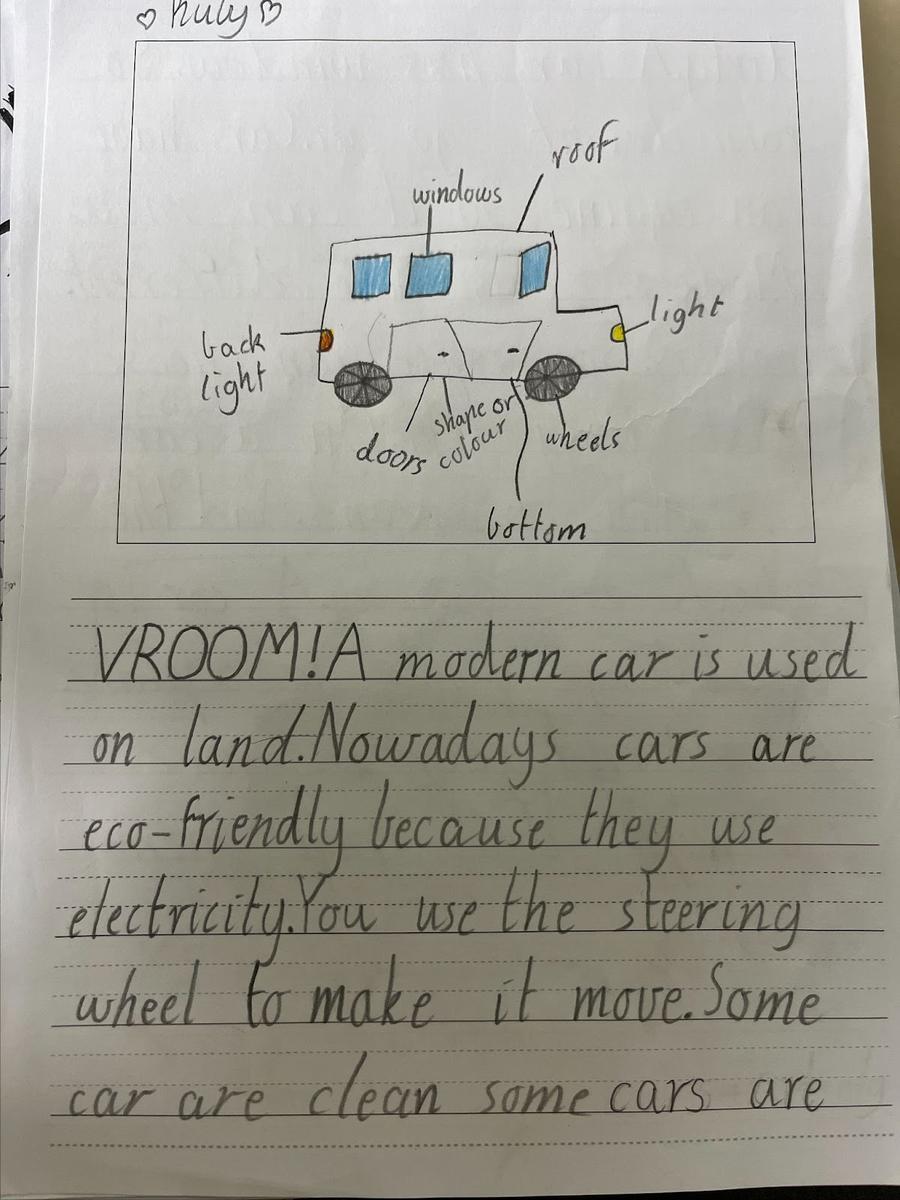 roof
windows
light
back
light
shape or
colour
doors
wheels
bottom
VROOM! A modern car is used
on land. Nowadays cars are
eco-friendly because they use
electricity. You use the steering
wheel to make it move. Some
car are clean some cars are